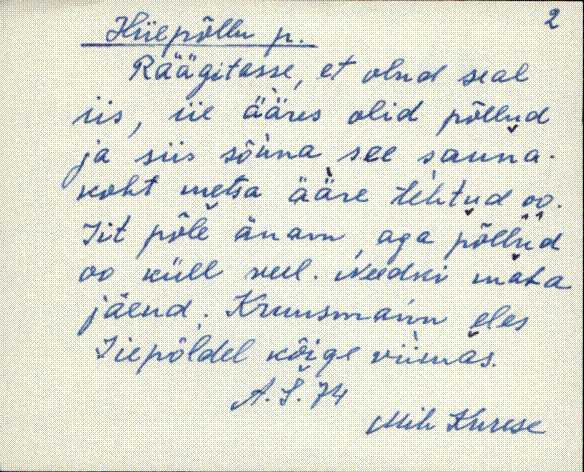 2
Hiiepõllu p.
Räägitasse, et olnd seal
iis, iie ääres olid põllud
ja siis sõnna see sauna-
koht metsa ääre tehtud oo.
Iit põle änam, aga põllud
oo küll veel. Needki maha
jäend. Kruusmann eles
Iiepõldel kõige viimas.
A. Š. 74